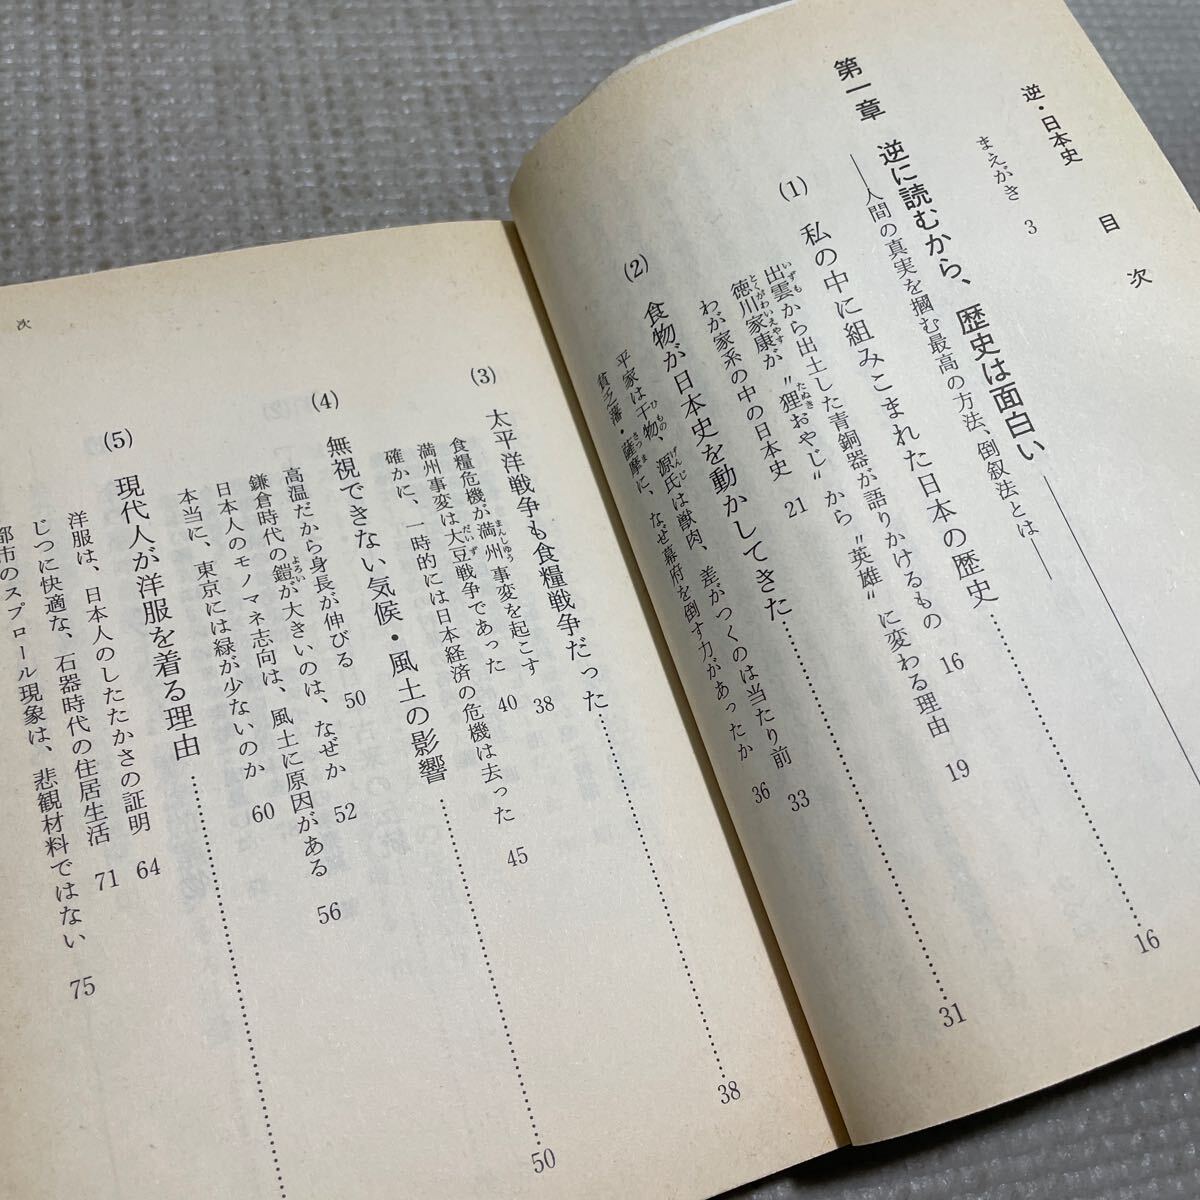 逆・日本史 目次
まえがき 3
第一章 逆に読むから、歴史は面白い
――人間の真実を摑む最高の方法、倒叙法とは――
(1) 私の中に組みこまれた日本の歴史 16
出雲から出土した青銅器が語りかけるもの 16
徳川家康が〝狸おやじ〟から〝英雄〟に変わる理由 19
わが家系の中の日本史 21
(2) 食物が日本史を動かしてきた 31
平家は干物、源氏は獣肉、差がつくのは当たり前 33
貧乏藩・薩摩に、なぜ幕府を倒す力があったか 36
(3) 太平洋戦争も食糧戦争だった 38
食糧危機が満州事変を起こす 38
満州事変は大豆戦争であった 40
確かに、一時的には日本経済の危機は去った 45
(4) 無視できない気候・風土の影響 50
高温だから身長が伸びる 50
鎌倉時代の鎧が大きいのは、なぜか 52
日本人のモノマネ志向は、風土に原因がある 56
本当に、東京には緑が少ないのか 60
(5) 現代人が洋服を着る理由
洋服は、日本人のしたたかさの証明 64
じつに快適な、石器時代の住居生活 71
都市のスプロール現象は、悲観材料ではない 75
次